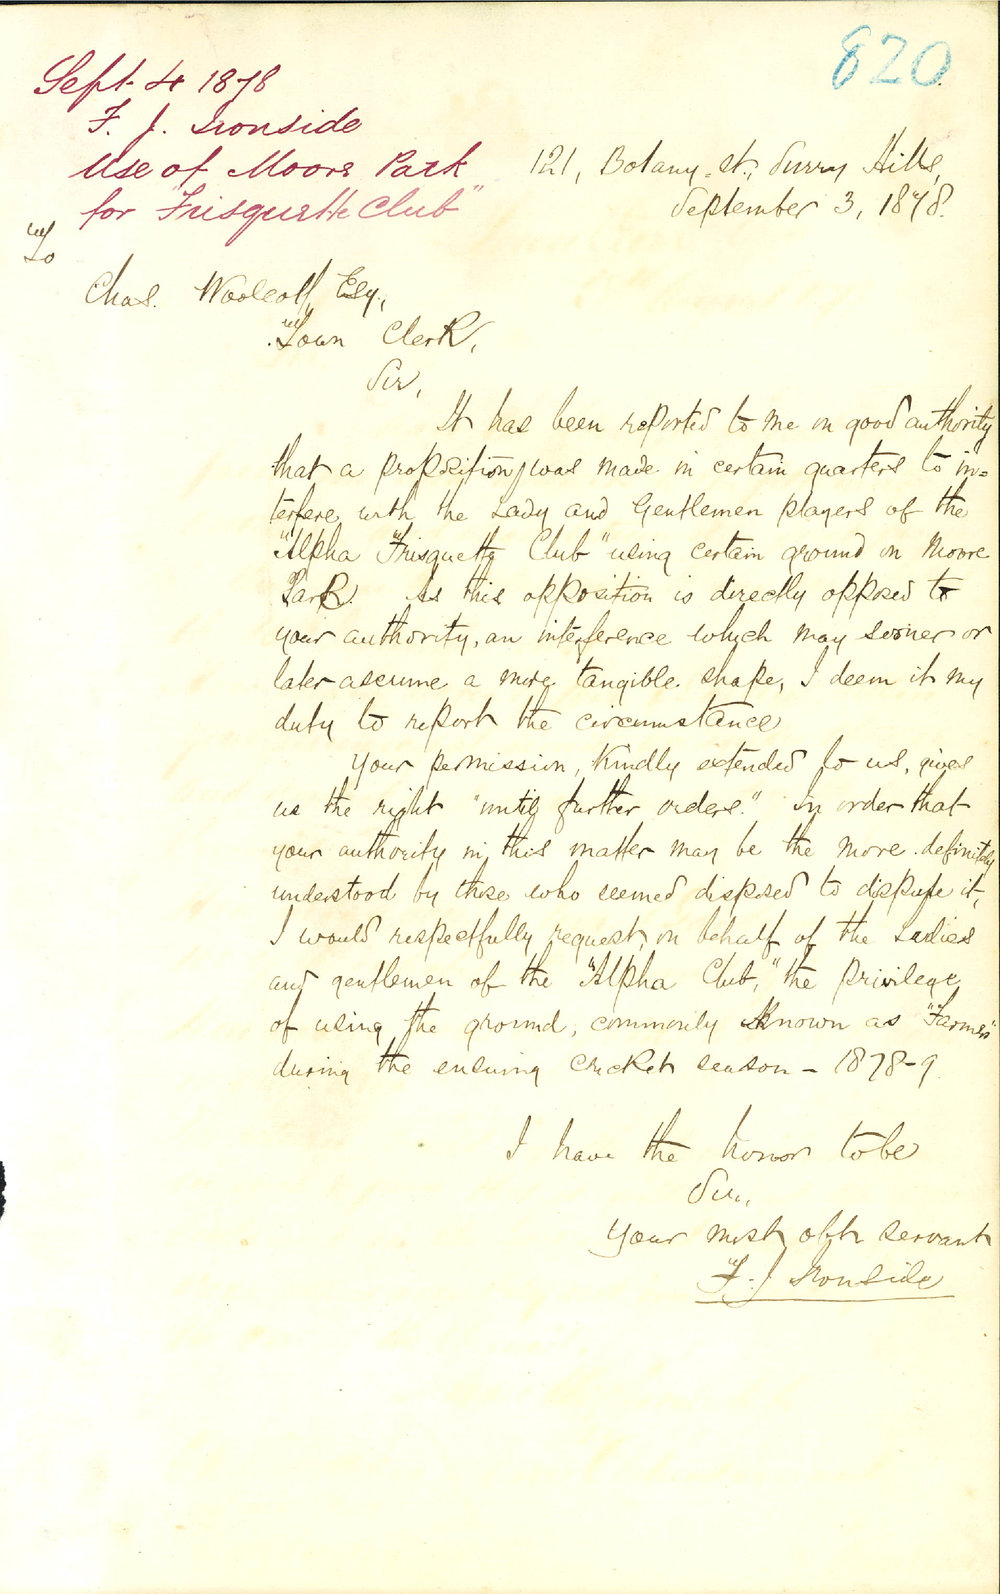 820
Sept. 4 1878
F. J. Ironside
Use of Moore Park
for "Frisquette Club"
121, Botany st., Surry Hills,
September 3, 1878.
To
Chas. Woolcott, Esq.,
Town Clerk,
Sir,
It has been reported to me on good authority
that a proposition was made in certain quarters to in=
terfere with the Lady and Gentlemen players of the
"Alpha Frisquette Club" using certain ground on Moore
Park. As this opposition is directly opposed to
your authority, an interference which may sooner or
later assume a more tangible shape, I deem it my
duty to report the circumstance
Your permission, kindly extended to us, gives
us the right "until further orders." In order that
your authority in this matter may be the more definitely
understood by those who seemed disposed to dispute it,
I would respectfully request, on behalf of the Ladies
and gentlemen of the "Alpha Club," the privilege
of using the ground, commonly known as "Farmer's"
during the ensuing cricket season – 1878-9
I have the honor to be
Sir,
Your most obt servant
F. J Ironside